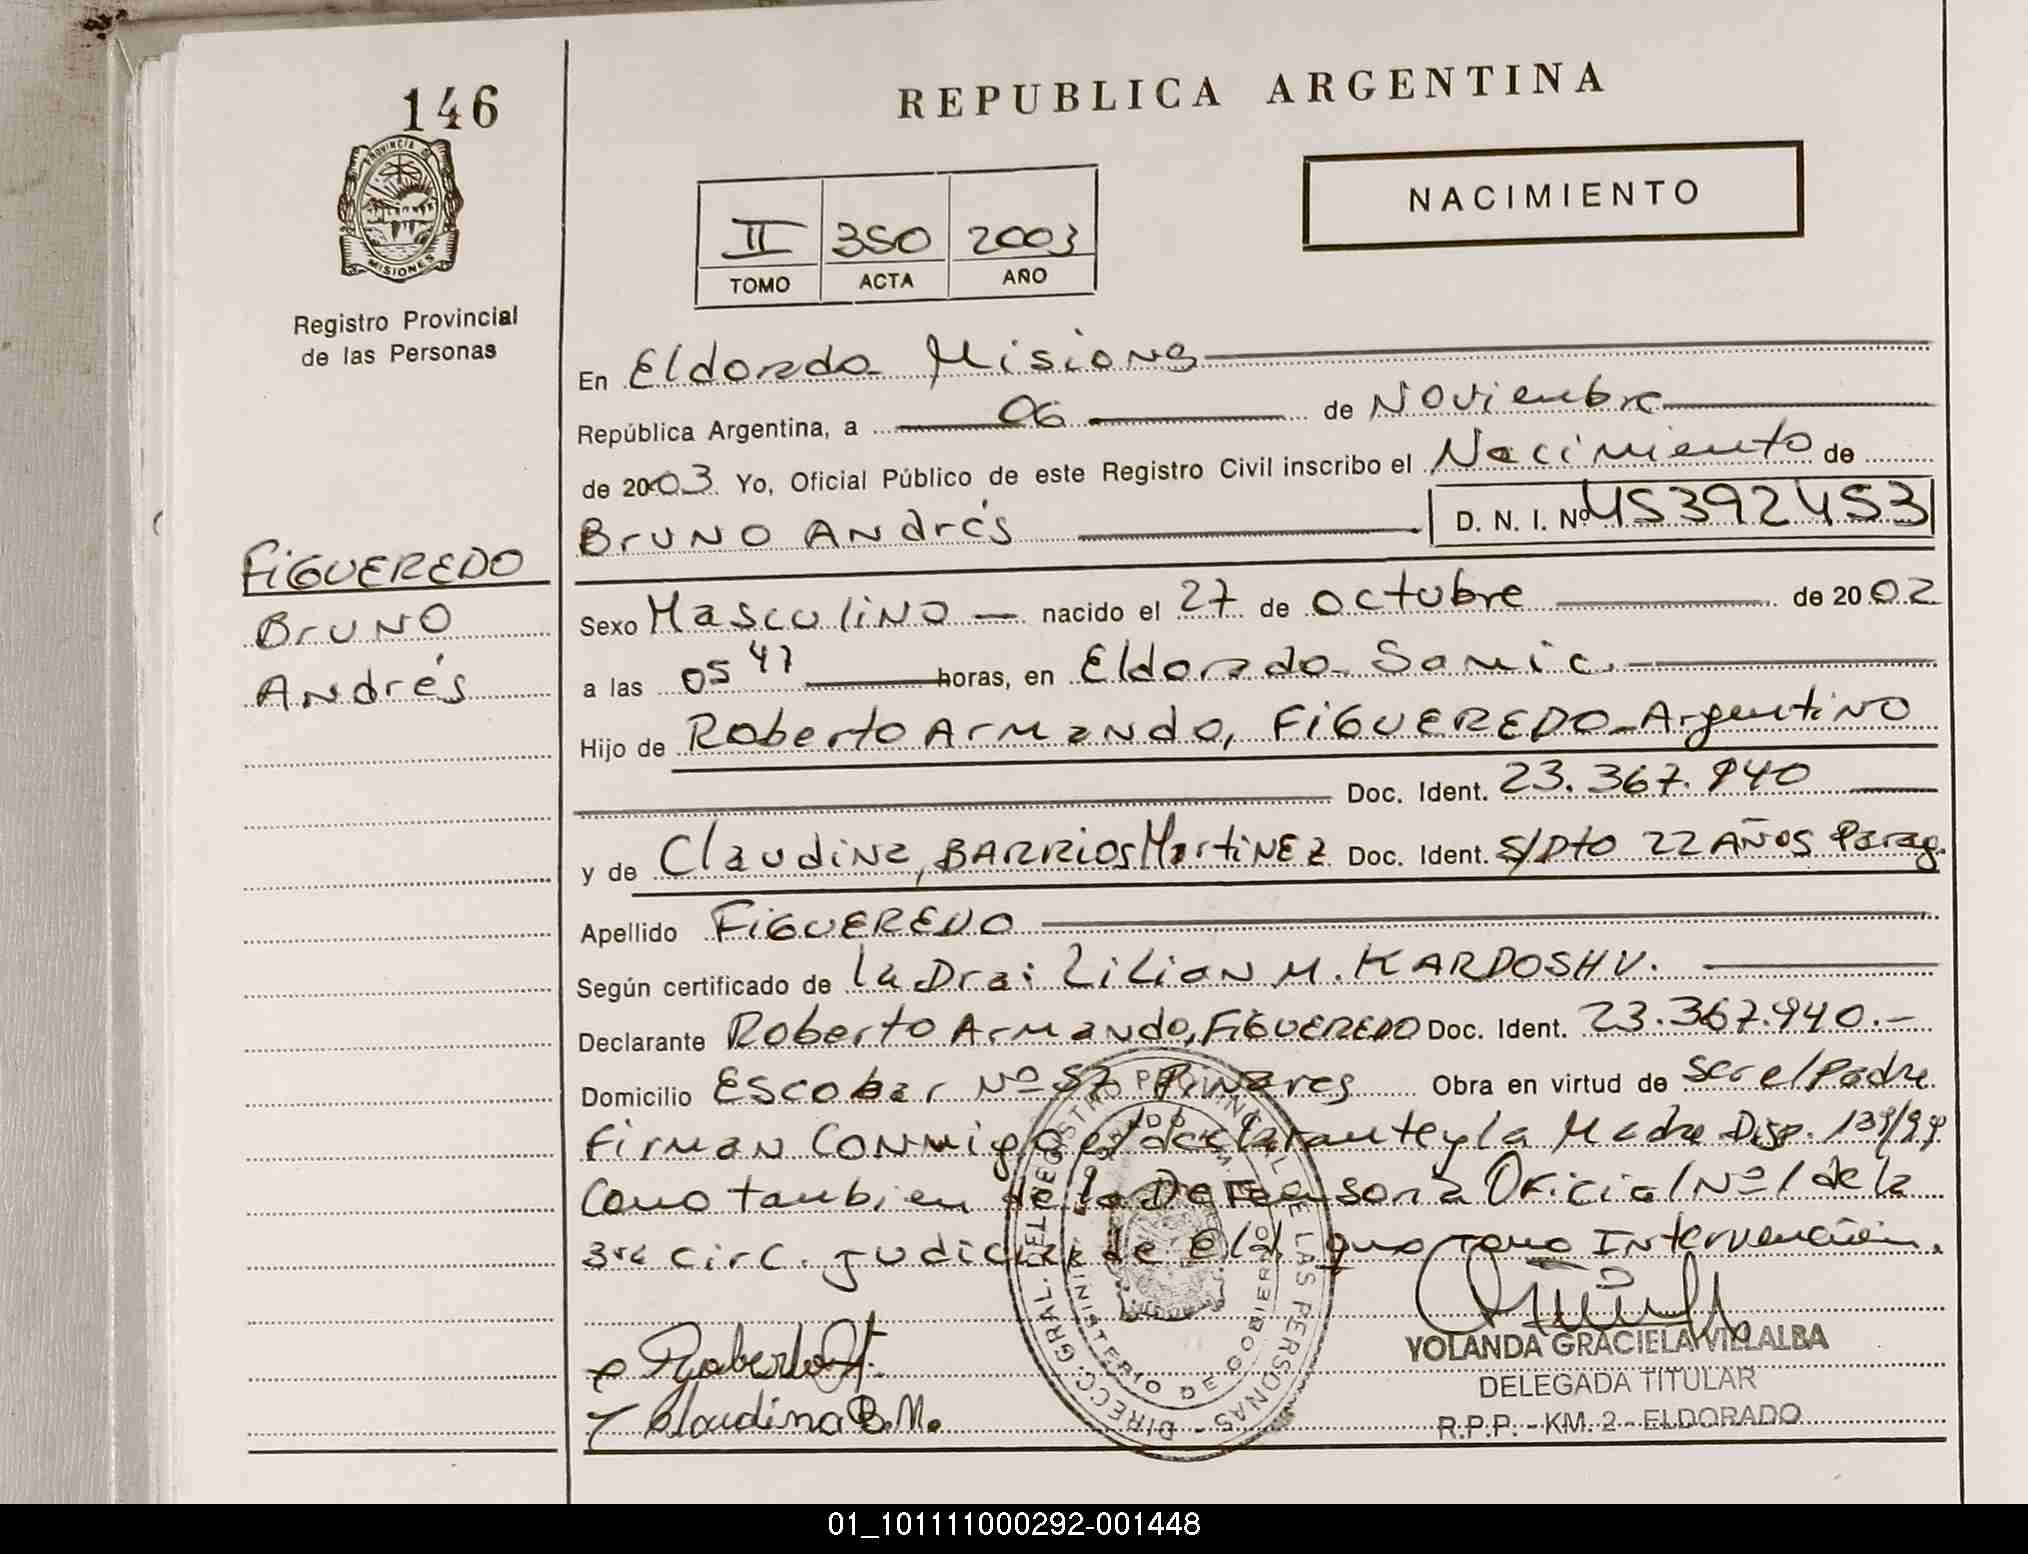 146
PROVINCIA DE
MISIONES
Registro Provincial
de las Personas
REPUBLICA ARGENTINA
NACIMIENTO
II 350 2003
TOMO ACTA AÑO
En Eldorado Misiones
República Argentina, a 06 de Noviembre
de 2003. Yo, Oficial Público de este Registro Civil inscribo el Nacimiento de
Bruno Andrés D. N. I. Nº 45392453
FIGUEREDO
Bruno
Andrés
Sexo Masculino nacido el 27 de octubre de 2002
a las 05 47 horas, en Eldorado Samic.
Hijo de Roberto Armando, FIGUEREDO - Argentino
Doc. Ident. 23.367.940
y de Claudina, BARRIOS Martinez Doc. Ident. S/Dto 22 AÑOS Parag.
Apellido FIGUEREDO
Según certificado de la Dra: Lilian M. KARDOSHU.
Declarante Roberto Armando, FIGUEREDO Doc. Ident. 23.367.940.-
Domicilio Escobar Nº 57 Pinares Obra en virtud de ser el Padre
Firman conmigo el declarante y la Madre Disp. /99
Como tambien de la Defensoria Oficial Nº 1 de la
3ra circ. judicial de Eld. que tomo Intervención.
Roberto
Claudina B.M.
DIRECC. GRAL. DEL REGISTRO PROVINCIAL DE LAS PERSONAS -
MINISTERIO DE GOBIERNO
YOLANDA GRACIELA VILLALBA
DELEGADA TITULAR
R.P.P. - KM. 2 - ELDORADO
01_101111000292-001448